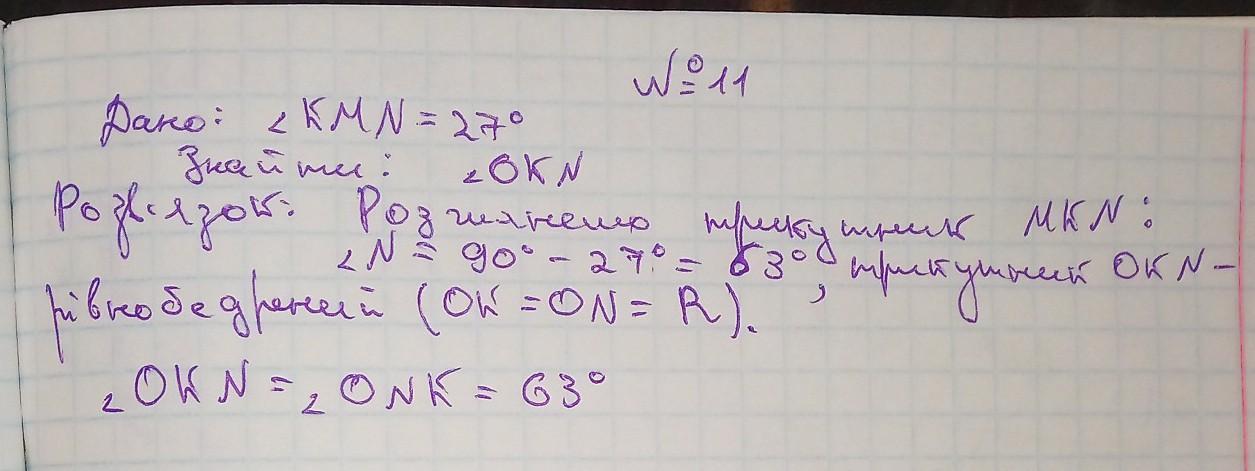 №11
Дано: ∠KMN = 27°
Знайти: ∠OKN
Розв'язок: Розглянемо трикутник MKN:
∠N = 90° - 27° = 63°, трикутник OKN -
рівнобедрений (OK = ON = R).
∠OKN = ∠ONK = 63°